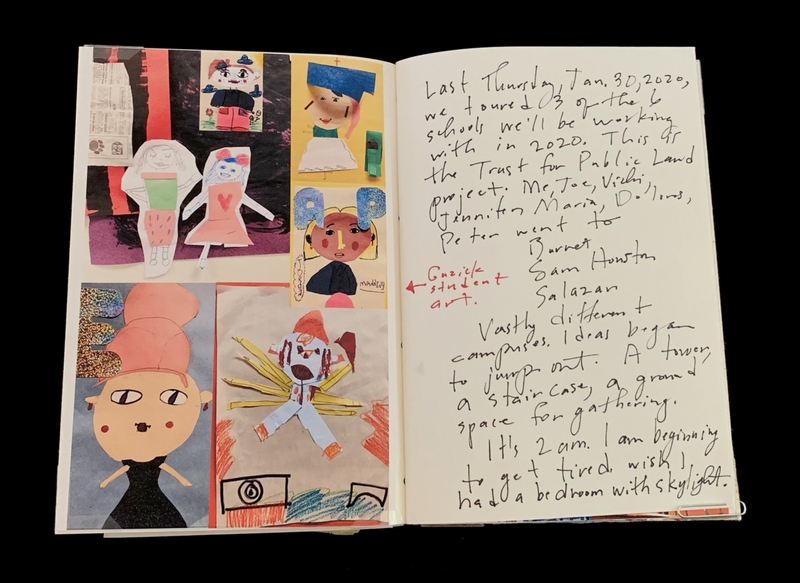 Last Thursday, Jan. 30, 2020,
we toured 3 of the 6
schools we'll be working
with in 2020. This is
the Trust for Public Land
project. Me, Joe, Vicki,
Jennifer, Maria, Dolores,
Peter went to
Burnet
Sam Houston
Salazar
← Guzick
student
art.
Vastly different
campuses. Ideas began
to jump out. A tower,
a staircase, a grand
space for gathering.
It's 2 am. I am beginning
to get tired. wish I
had a bedroom with skylight.
A P
E